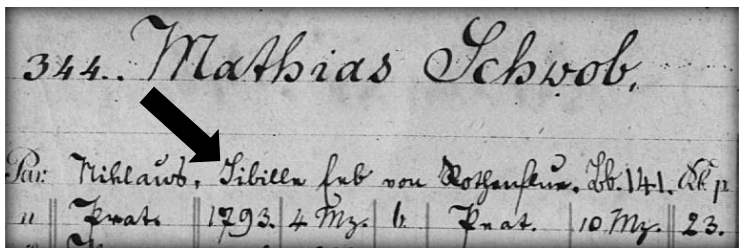 344. Mathias Schwob.
Par: Niklaus, Sibille Erb von Rothenflue. Bb. 141.
n Prat. 1793. 4 Mz. b. Prat. 10 Mz. 23.